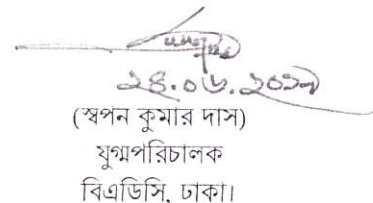 ২৪.০৬.২০১৯
(স্বপন কুমার দাস)
যুগ্মপরিচালক
বিএডিসি, ঢাকা।